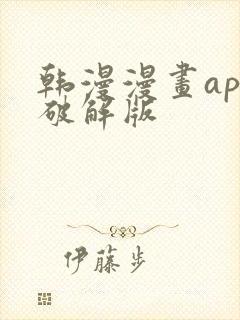 韩漫漫畫ap
破解版
伊藤步